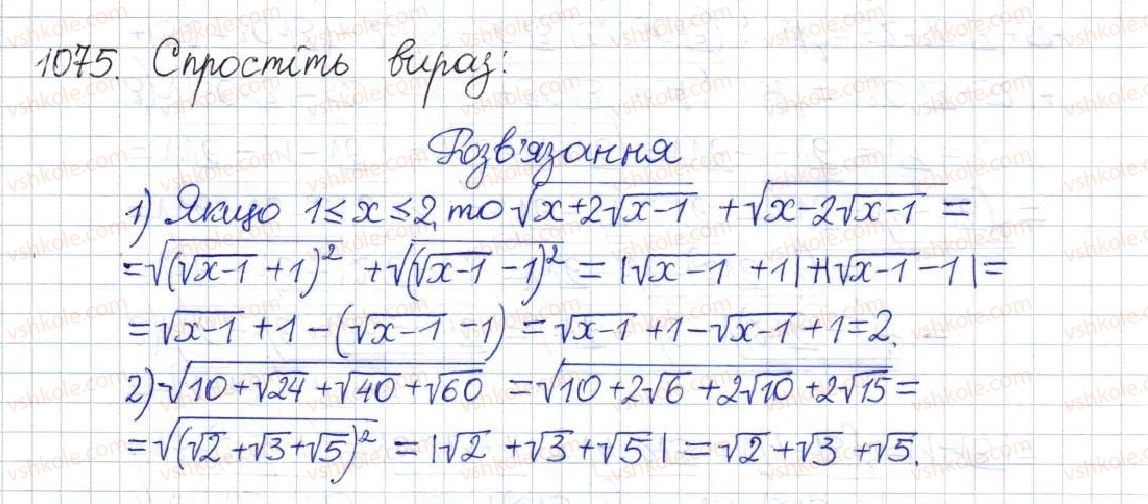 1075. Спростіть вираз:
Розв'язання
1) Якщо 1 ≤ x ≤ 2, то √(x+2√(x-1)) + √(x-2√(x-1)) =
= √((√(x-1) + 1)²) + √((√(x-1) - 1)²) = |√(x-1) + 1| + |√(x-1) - 1| =
= √(x-1) + 1 - (√(x-1) - 1) = √(x-1) + 1 - √(x-1) + 1 = 2.
2) √(10 + √24 + √40 + √60) = √(10 + 2√6 + 2√10 + 2√15) =
= √((√2 + √3 + √5)²) = |√2 + √3 + √5| = √2 + √3 + √5.